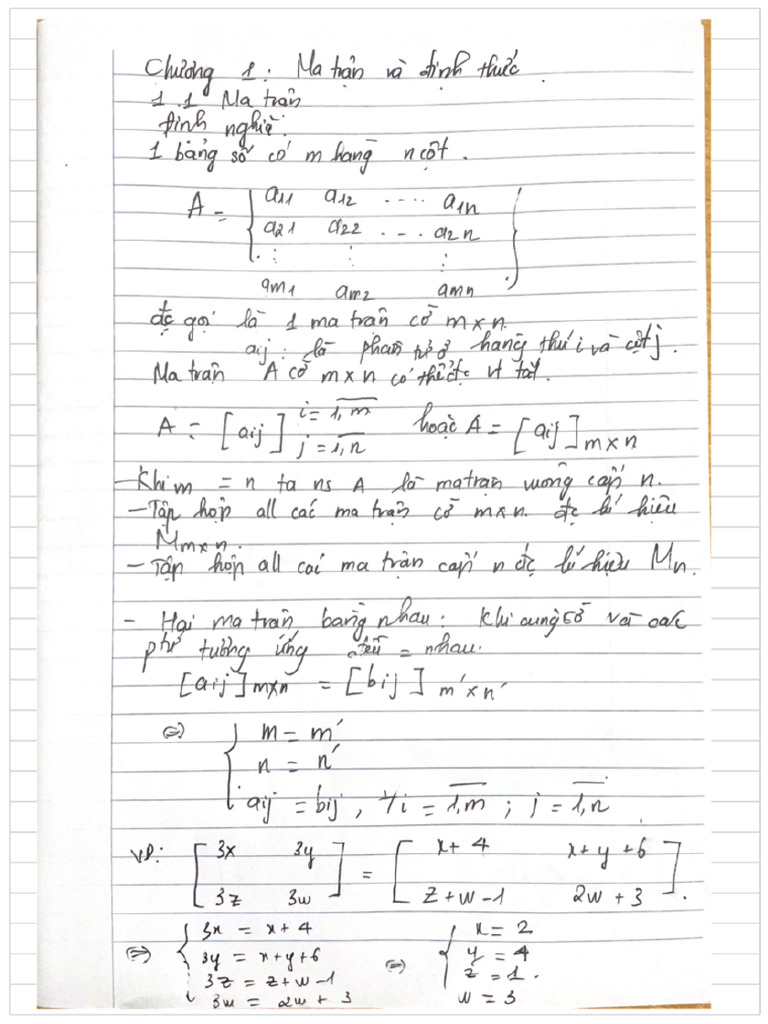 Chương 1: Ma trận và định thức
1.1 Ma trận
Định nghĩa:
1 bảng số có m hàng n cột.
A = { a11 a12 .... a1n
a21 a22 ... a2n
⋮ ⋮ ⋮
am1 am2 amn )
đc gọi là 1 ma trận cỡ m×n.
aij: là phần tử ở hàng thứ i và cột j.
Ma trận A cỡ m×n có thể đc vt tắt.
A = [aij] i = 1,m j = 1,n hoặc A = [aij] m×n
- Khi m = n ta ns A là ma trận vuông cấp n.
- Tập hợp all các ma trận cỡ m×n. đc kí hiệu
Mm×n.
- Tập hợp all các ma trận cấp n đc kí hiệu Mn.
- Hai ma trận bằng nhau: Khi cùng cỡ và các
ptử tương ứng đều = nhau.
[aij]m×n = [bij] m'×n'
⇔ { m = m'
n = n'
aij = bij, ∀i = 1,m ; j = 1,n
VD: [ 3x 3y ] = [ x+4 x+y+6 ]
[ 3z 3w ] [ z+w-1 2w+3 ].
⇔ { 3x = x+4 ⇔ { x = 2
3y = x+y+6 y = 4
3z = z+w-1 z = 1.
3w = 2w+3 w = 3